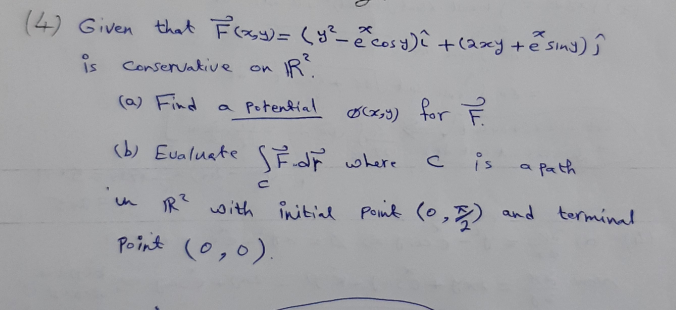 (4) Given that F⃗(x,y) = (y² - eˣ cos y) î + (2xy + eˣ sin y) ĵ
is conservative on ℝ².
(a) Find a potential ø(x,y) for F⃗.
(b) Evaluate ∫_C F⃗·dr⃗ where C is a path
in ℝ² with initial point (0, π/2) and terminal
point (0, 0).